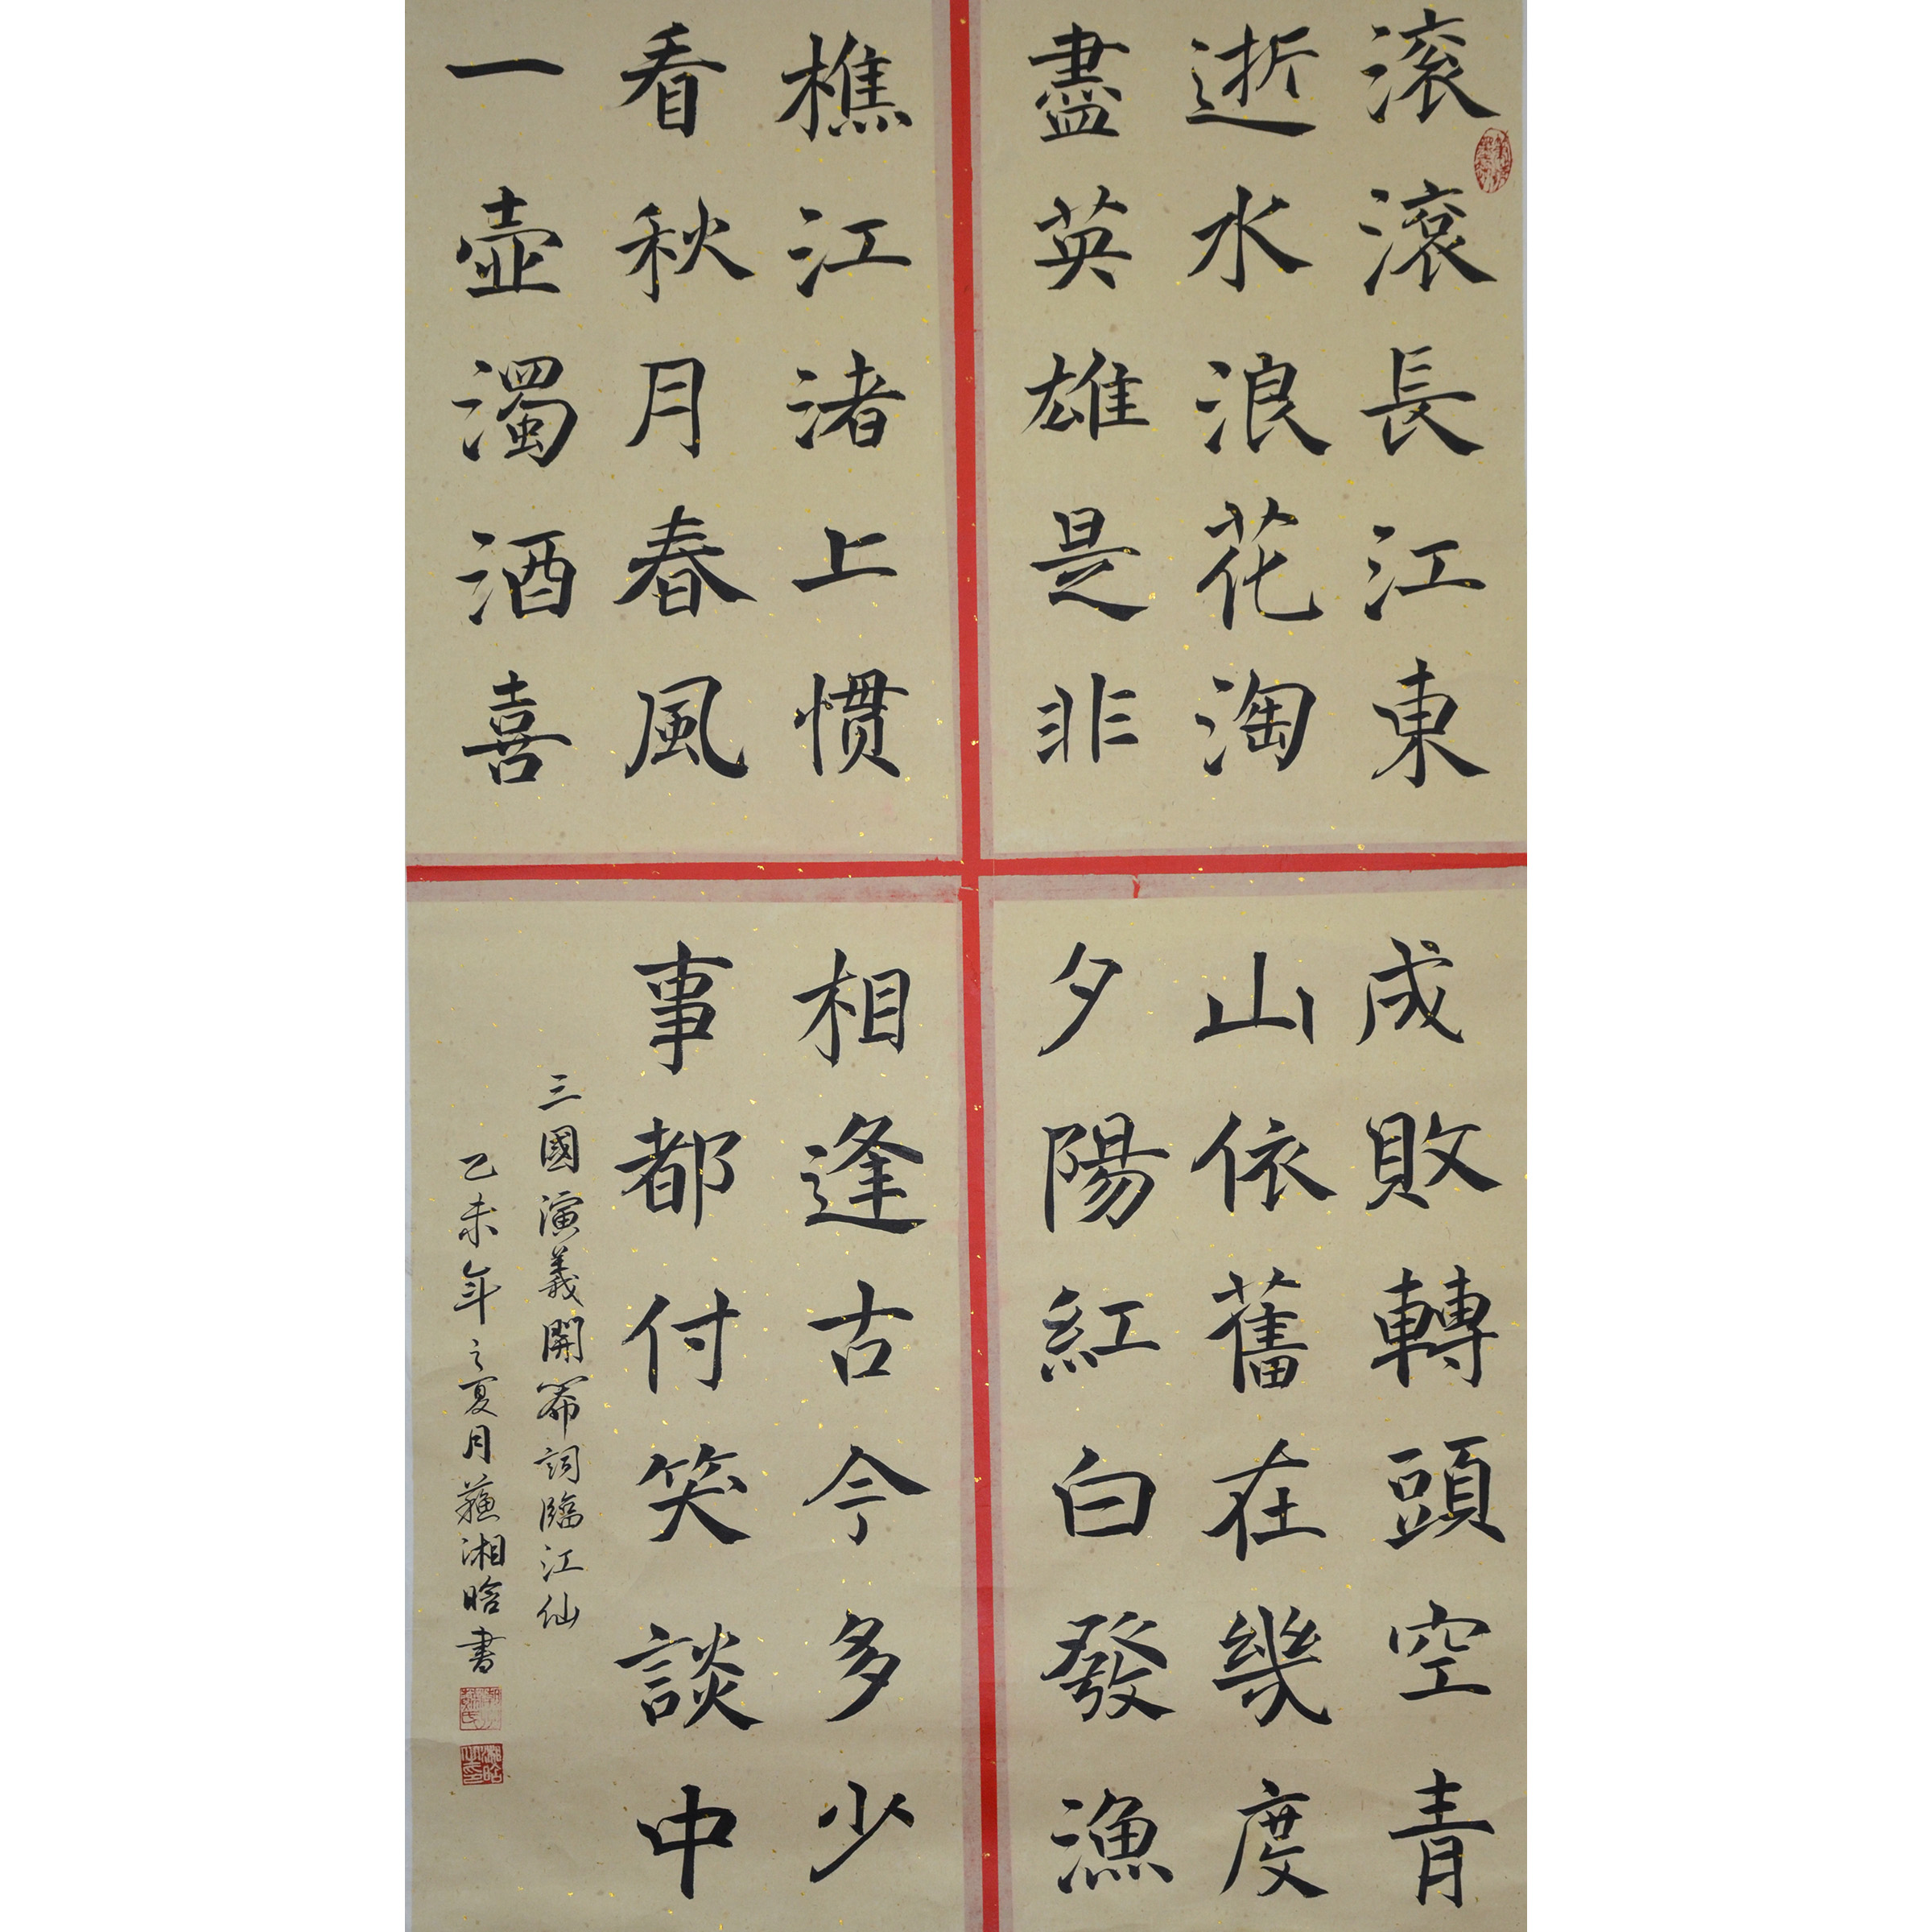 滚滚長江東
逝水浪花淘
盡英雄是非
成敗轉頭空青
山依舊在幾度
夕陽紅白發漁
樵江渚上惯
看秋月春風
一壺濁酒喜
相逢古今多少
事都付笑談中
三國演義開篇詞臨江仙
乙未年之夏月蘇湘晗書